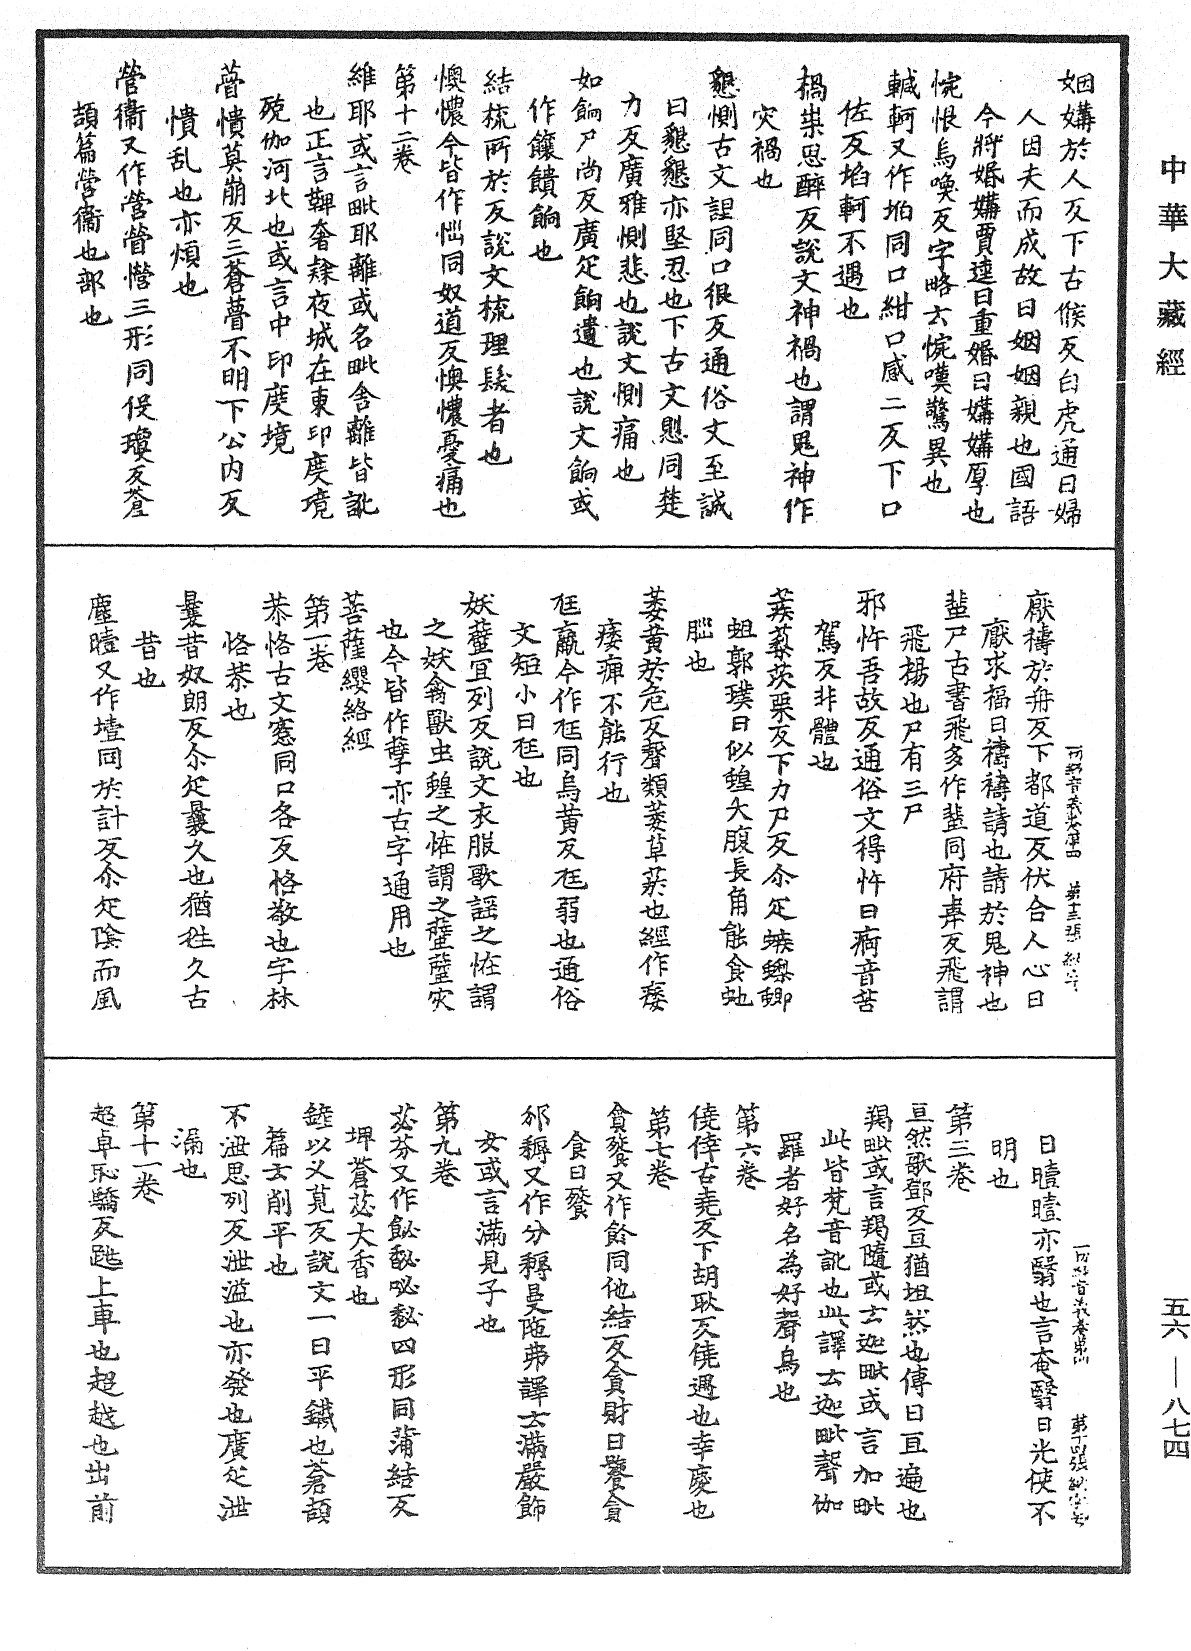 中華大藏經
姻媾於人反下古候反白虎通曰婦
人因夫而成故曰姻姻親也國語
今將婚媾賈逵曰重婚曰媾媾厚也
惋恨烏喚反字略云惋嘆驚異也
轗軻又作埳同口紺口感二反下口
佐反埳軻不遇也
禍祟思醉反說文神禍也謂鬼神作
灾禍也
懇惻古文詪同口很反通俗文至誠
曰懇懇亦堅忍也下古文㥽同楚
力反廣雅惻悲也說文惻痛也
如餉尸尚反廣疋餉遺也說文餉或
作饟饋餉也
結梳所於反說文梳理髮者也
懊憹今皆作惱同奴道反懊憹憂痛也
第十二卷
維耶或言毗耶離或名毗舍離皆訛
也正言鞞奢隷夜城在東印度境
殑伽河北也或言中印度境
瞢憒莫崩反三蒼瞢不明下公內反
憒乱也亦煩也
營衞又作營㬂憕三形同役瓊反蒼
頡篇營衞也部也
厭禱於冉反下都道反伏合人心曰
厭求福曰禱禱請也請於鬼神也
蜚尸古書飛多作蜚同府韋反飛謂
飛揚也尸有三尸
邪忤吾故反通俗文得忤曰痾音苦
駕反非體也
蒺藜茨栗反下力尸反尒疋蝍蛆
蛆郭璞曰似蝗大腹長角能食虵
腦也
萎黃於危反聲類萎草菸也經作痿
痿痹不能行也
尫羸今作尫同烏黃反尫弱也通俗
文短小曰尫也
妖蠥宜列反說文衣服歌謡之怪謂
之妖禽獸虫蝗之怪謂之蠥蠥灾
也今皆作孽亦古字通用也
菩薩纓絡經
第一卷
恭恪古文愙同口各反恪敬也字林
恪恭也
曩昔奴朗反尒疋曩久也猶往久古
昔也
塵曀又作㙪同於計反尒疋陰而風
日曀曀亦翳也言奄翳日光使不
明也
第三卷
亘然歌鄧反亘猶坦然也傳曰亘遍也
羯毗或言羯隨或云迦毗或言加毗
此皆梵音訛也此譯云迦毗聲伽
羅者好名為好聲鳥也
第六卷
僥倖古堯反下胡耿反僥遇也幸慶也
第七卷
貪餮又作飻同他結反貪財曰饕貪
食曰餮
邠耨又作分耨曼陁弗譯云滿嚴飾
女或言滿見子也
第九卷
苾芬又作飶馝咇䭇四形同蒲結反
埤蒼苾大香也
鏟以乂莧反說文一曰平鐵也蒼頡
篇云削平也
不泄思列反泄溢也亦發也廣疋泄
漏也
第十一卷
超卓恥驕反跳上車也超越也出前
五六—八七四